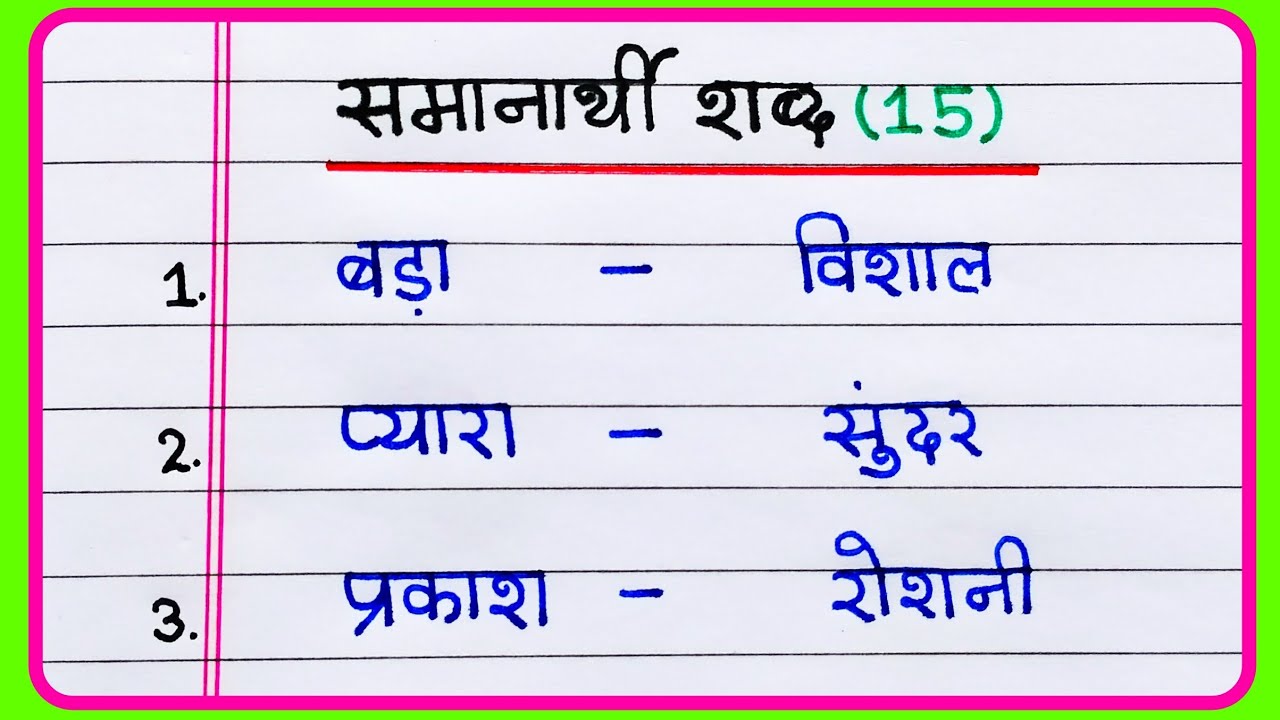 समानार्थी शब्द (15)
1. बड़ा - विशाल
2. प्यारा - सुंदर
3. प्रकाश - रोशनी